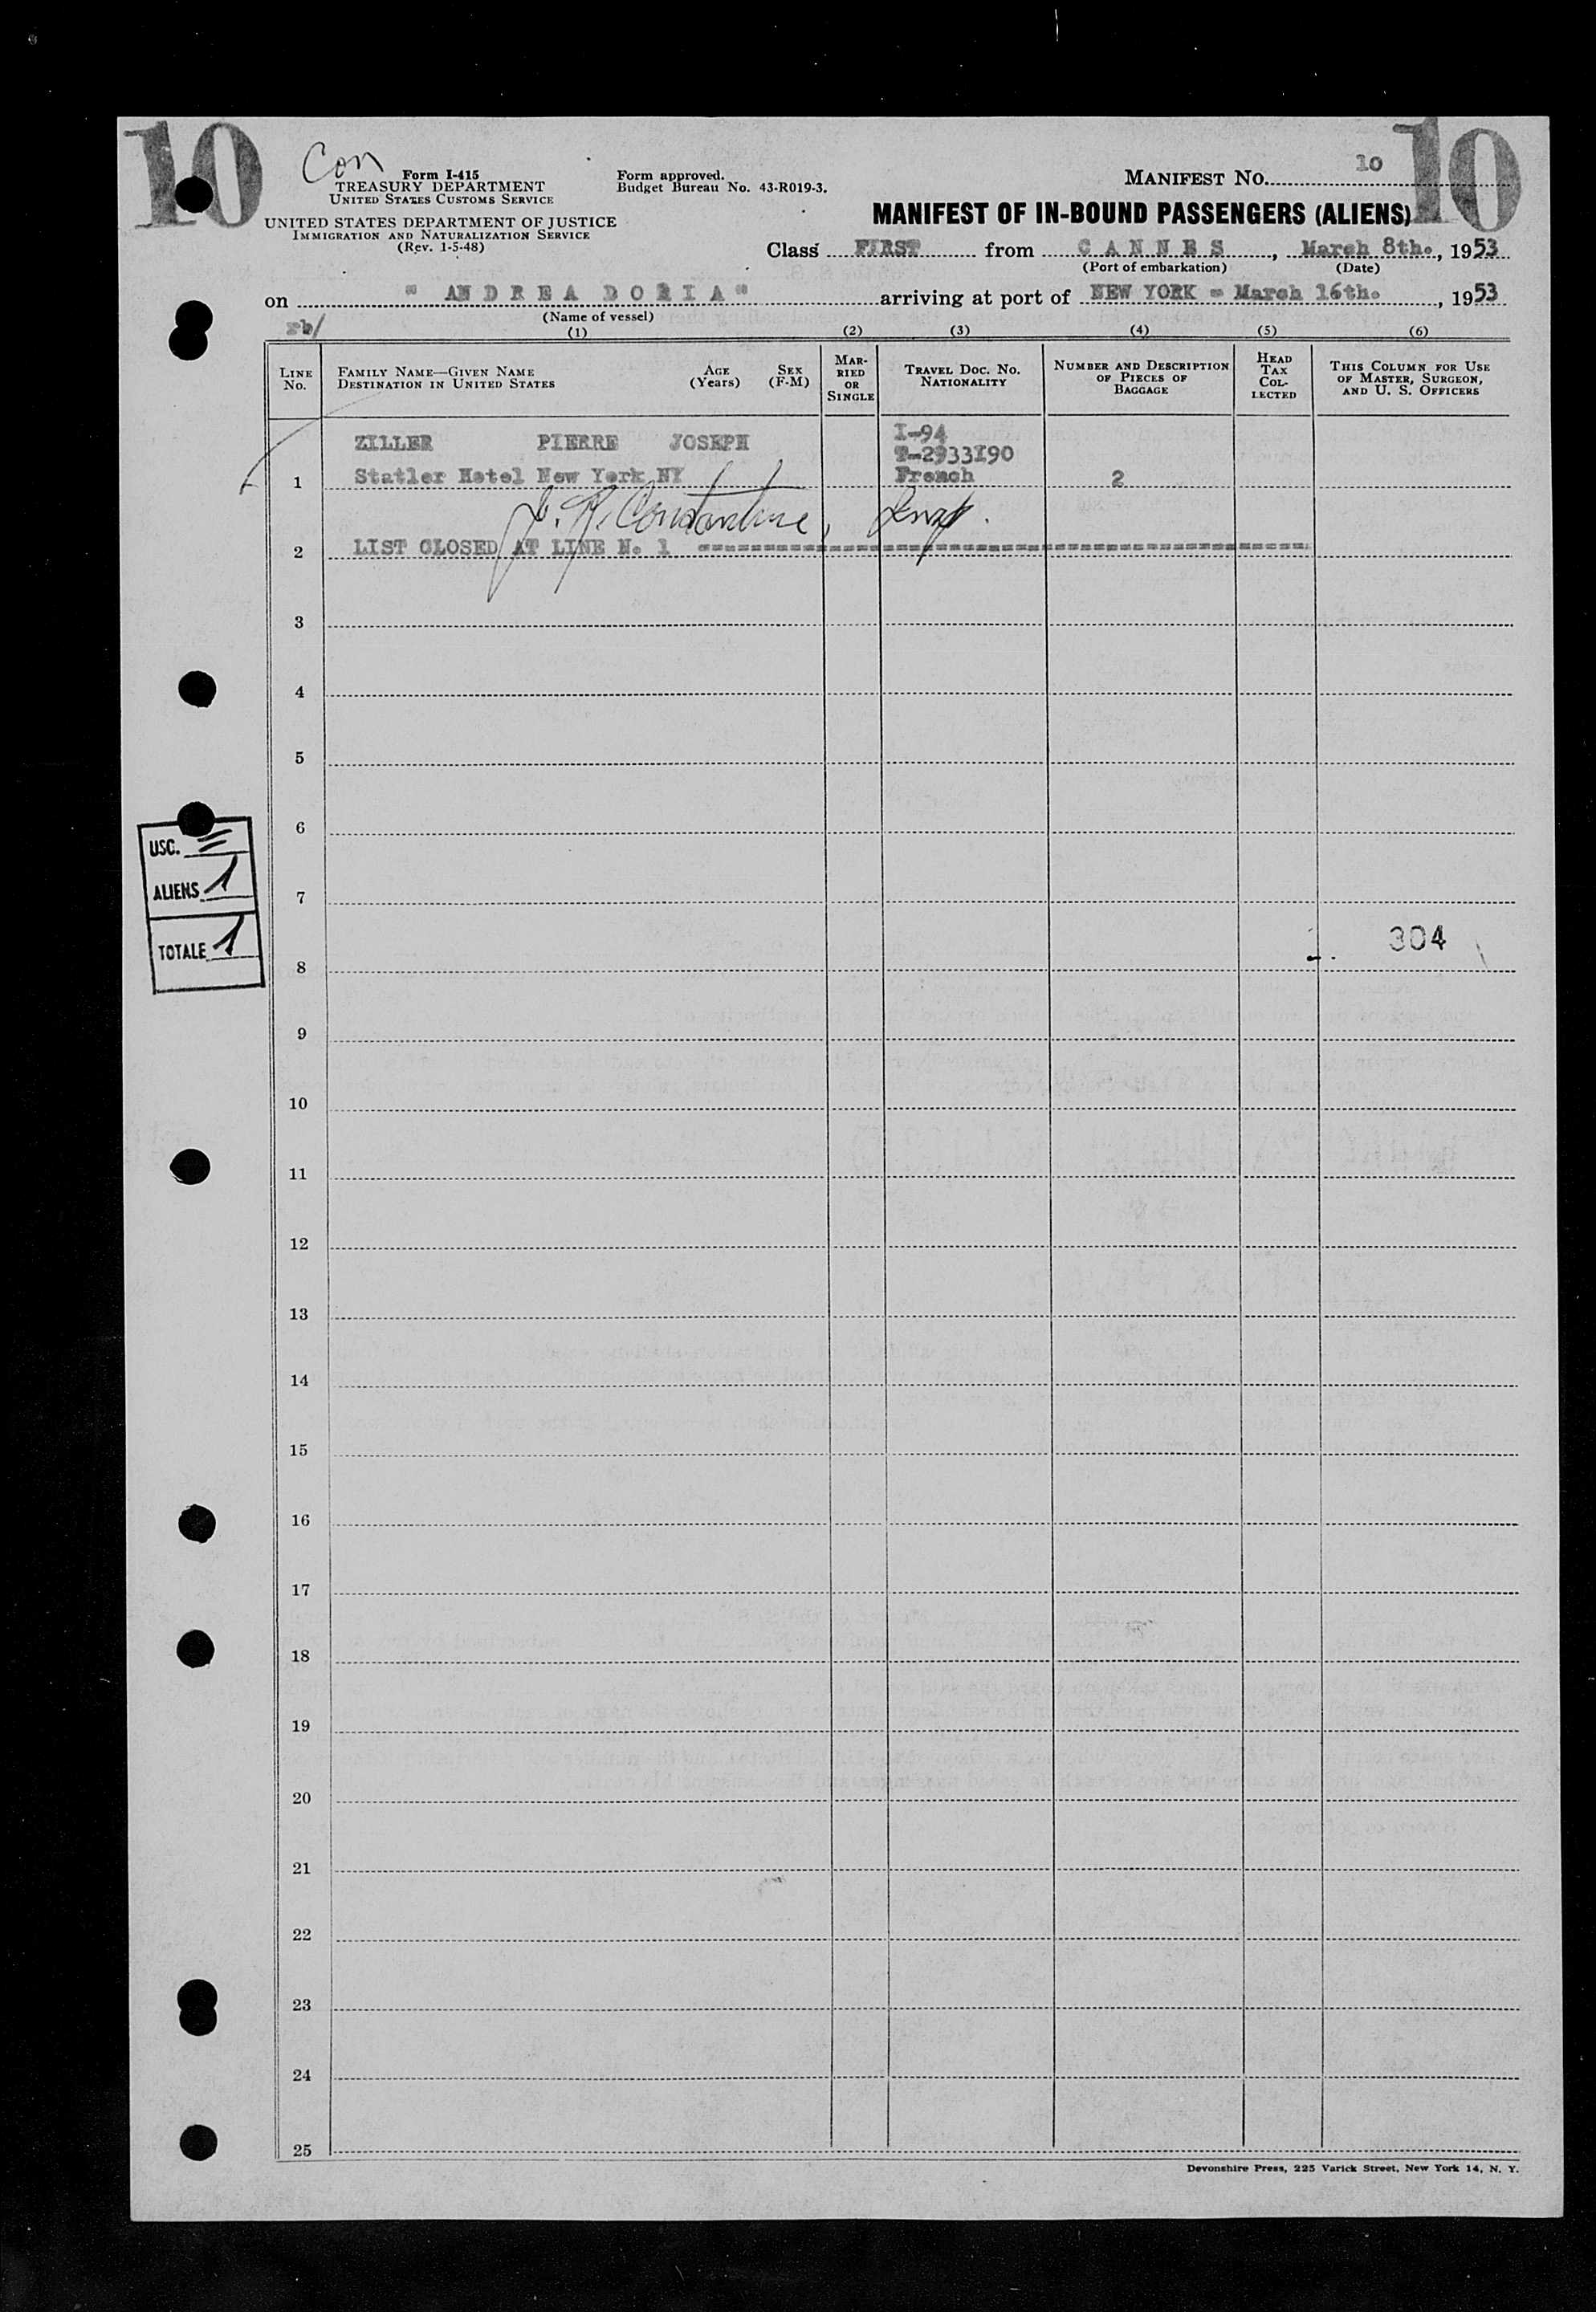 10
10
Con
Form I-415
TREASURY DEPARTMENT
UNITED STATES CUSTOMS SERVICE
UNITED STATES DEPARTMENT OF JUSTICE
IMMIGRATION AND NATURALIZATION SERVICE
(Rev. 1-5-48)
Form approved.
Budget Bureau No. 43-R019-3.
MANIFEST NO. 10
MANIFEST OF IN-BOUND PASSENGERS (ALIENS)
Class FIRST from C A N N E S, March 8th., 1953
(Port of embarkation) (Date)
on " AN D R E A D O R I A" arriving at port of NEW YORK - March 16th. , 1953
(Name of vessel)
rb/
(1) (2) (3) (4) (5) (6)
LINE NO.
FAMILY NAME—GIVEN NAME
DESTINATION IN UNITED STATES
AGE (Years)
SEX (F-M)
MARRIED OR SINGLE
TRAVEL DOC. NO. NATIONALITY
NUMBER AND DESCRIPTION OF PIECES OF BAGGAGE
HEAD TAX COLLECTED
THIS COLUMN FOR USE OF MASTER, SURGEON, AND U. S. OFFICERS
ZILLER PIERRE JOSEPH I-94
T-2933I90
1 Statler Hotel New York NY French 2
J. R. Constantine, Insp.
2 LIST CLOSED AT LINE N. 1
3
4
5
6
7
8
9
10
11
12
13
14
15
16
17
18
19
20
21
22
23
24
25
USC.
ALIENS 1
TOTALE 1
304
Devonshire Press, 225 Varick Street, New York 14, N. Y.